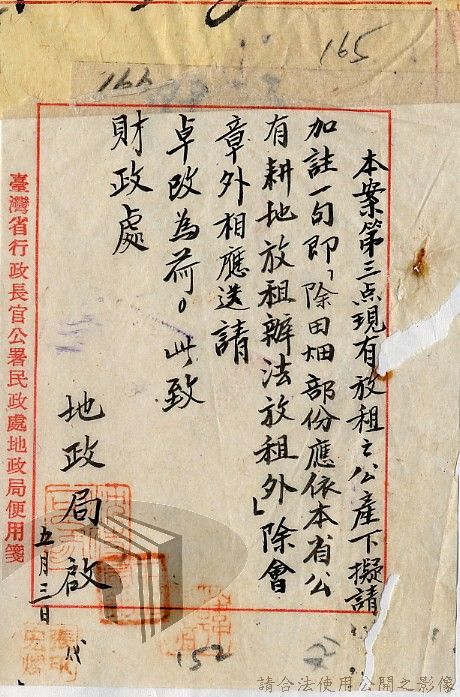 165
166
本案第三点現有放租之公產下擬請
加註一句即「除田畑部份應依本省公
有耕地放租辦法放租外」除會
章外相應送請
卓政為荷。此致
財政處
地政局啟
五月三日
臺灣省行政長官公署民政處地政局便用箋
152
請合法使用公開之影像